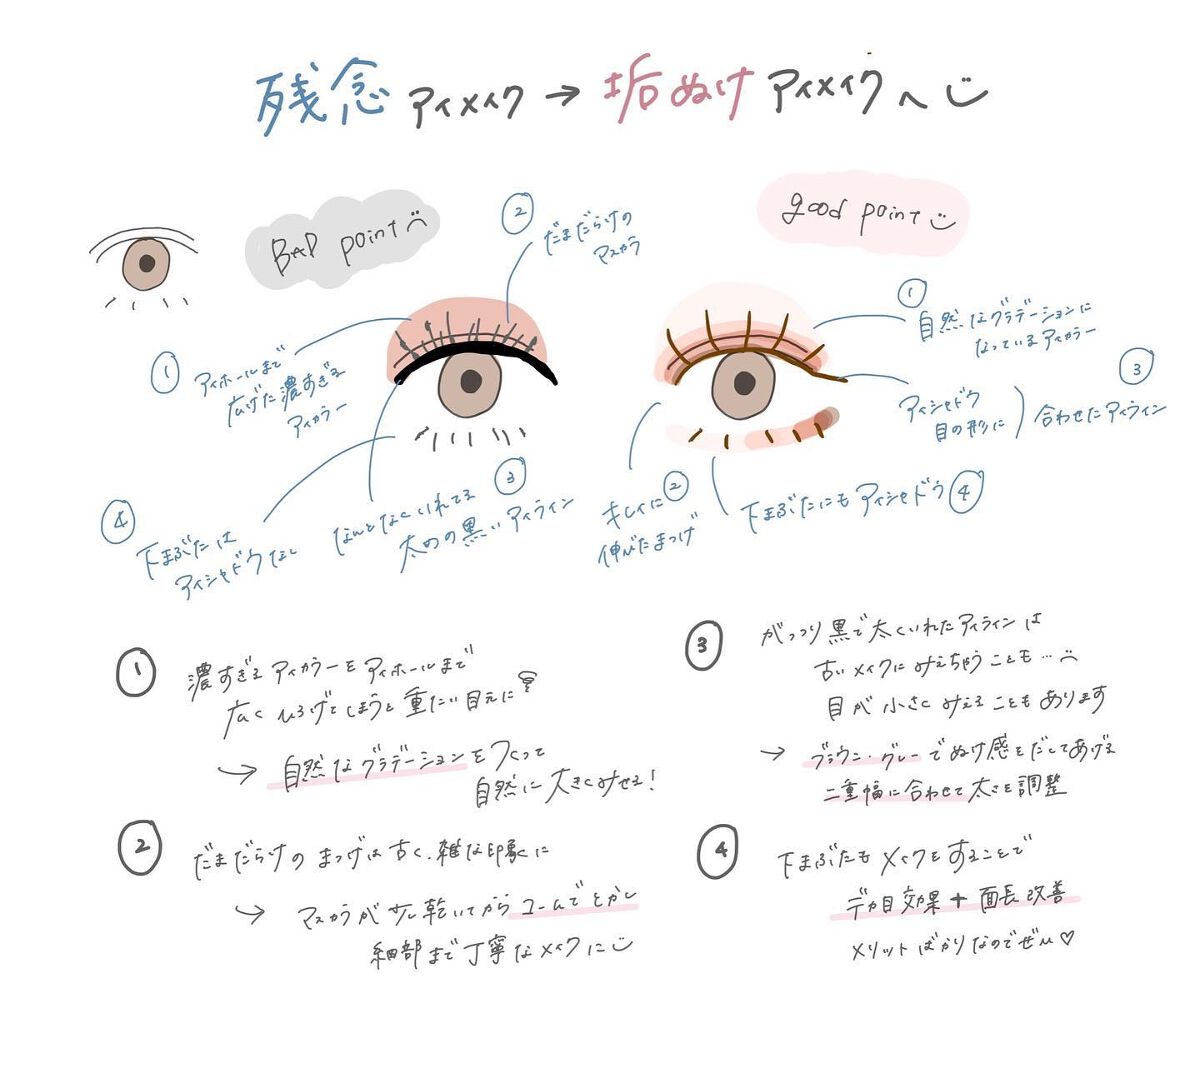 残念アイメイク→垢ぬけアイメイクへ
BAD point
② だまだらけの
マスカラ
① アイホールまで
広げた濃すぎる
アイカラー
④ 下まぶたは
アイシャドウなし
③ なんとなくいれてる
太めの黒いアイライン
good point
① 自然なグラデーションに
なっているアイカラー
③ アイシャドウ
目の形に
合わせたアイライン
② キレイに
伸びたまつげ
下まぶたにもアイシャドウ ④
① 濃すぎるアイカラーをアイホールまで
広くひろげてしまうと重たい目元に
→ 自然なグラデーションをつくって
自然に大きくみせる!
② だまだらけのまつげは古く、雑な印象に
→ マスカラが少し乾いてからコームでとかし
細部まで丁寧なメイクに
③ がっつり黒で太くいれたアイラインは
古いメイクにみえちゃうことも…
目が小さくみえることもあります
→ ブラウン・グレーでぬけ感をだしてあげる
二重幅に合わせて太さを調整
④ 下まぶたもメイクをすることで
デカ目効果+面長改善
メリットばかりなのでぜひ♡